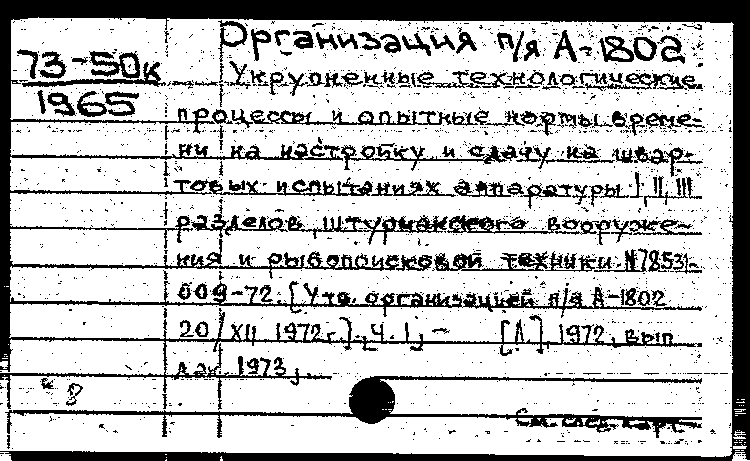 Организация п/я А-1802
73-50к
1965
Укрупненные технологические
процессы и опытные нормы време-
ни на настройку и сдачу на швар-
товых испытаниях аппаратуры I, II, III
разделов штурманского вооруже-
ния и рыбопоисковой техники. №78531-
009-72. [Утв. организацией п/я А-1802
20/XII 1972г.]. Ч. 1, - [Л.], 1972, вып
дан. 1973,.
8
См. след. карт.